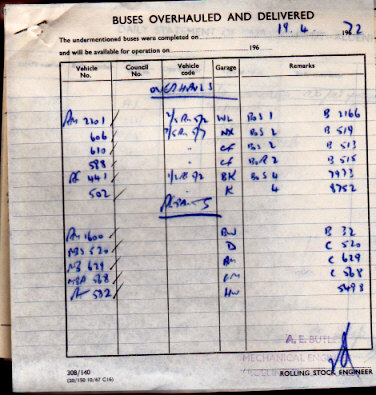 BUSES OVERHAULED AND DELIVERED
The undermentioned buses were completed on 19. 4. 196 72
and will be available for operation on 196
Vehicle No. Council No. Vehicle code Garage Remarks
OVERHAULS
RM 2201 WL BoS 1 B 2166
606 NX BoS 2 B 519
610 " CF BoS 2 B 513
588 " CF BoR 2 B 515
RF 441 BK BoS 4 7973
502 " K 4 8752
REPAIRS
RM 1600 BW B 32
MBS 520 D C 520
MB 629 AM C 629
MBA 568 C 568
RF 582 HW 5493
A. E. BUTL
MECHANICAL ENG
308/140
(28/150 10/67 C16)
ROLLING STOCK ENGINEER